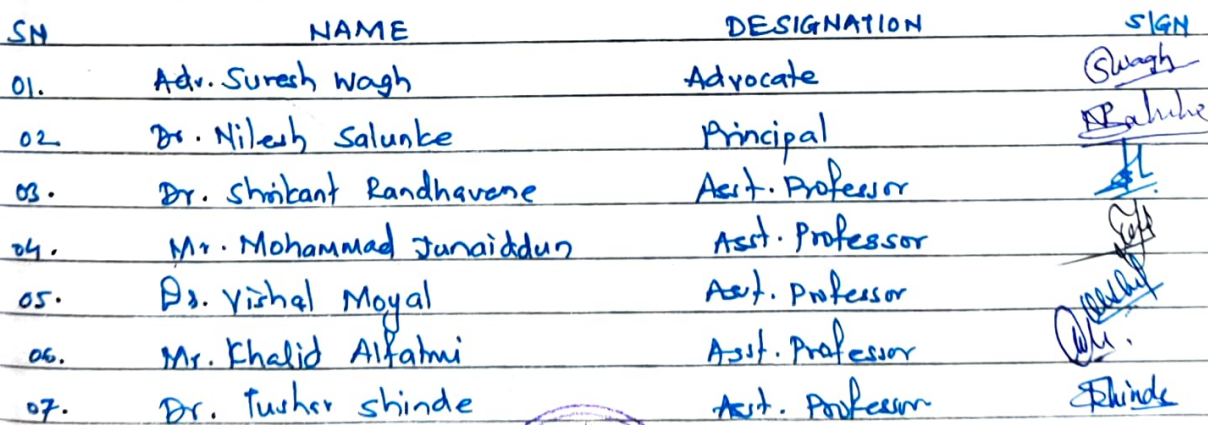 SN NAME DESIGNATION SIGN
01. Adv. Suresh Wagh Advocate Swagh
02 Dr. Nilesh Salunke Principal
03. Dr. Shrikant Randhavane Asst. Professor
04. Mr. Mohammad Junaiddun Asst. Professor
05. Dr. Vishal Moyal Asst. Professor
06. Mr. Khalid Alfatmi Asst. Professor
07. Dr. Tushar Shinde Asst. Professor Shinde